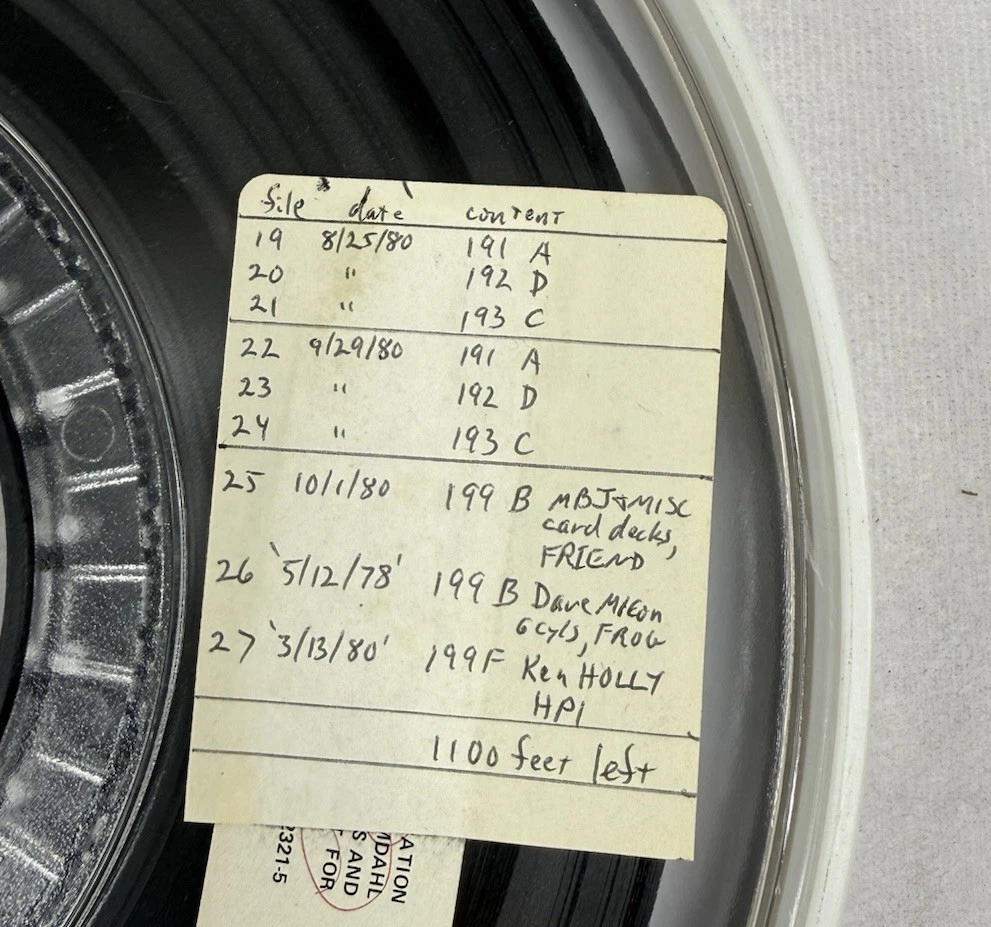 file date content
19 8/25/80 191 A
20 " 192 D
21 " 193 C
22 9/29/80 191 A
23 " 192 D
24 " 193 C
25 10/1/80 199 B MBJ+MISC
card decks,
FRIEND
26 '5/12/78' 199 B Dave
6 cyls, FROG
27 '3/13/80' 199F Ken HOLLY
HPI
1100 feet left
ATION
MDAHL
S AND
FOR
2321-5